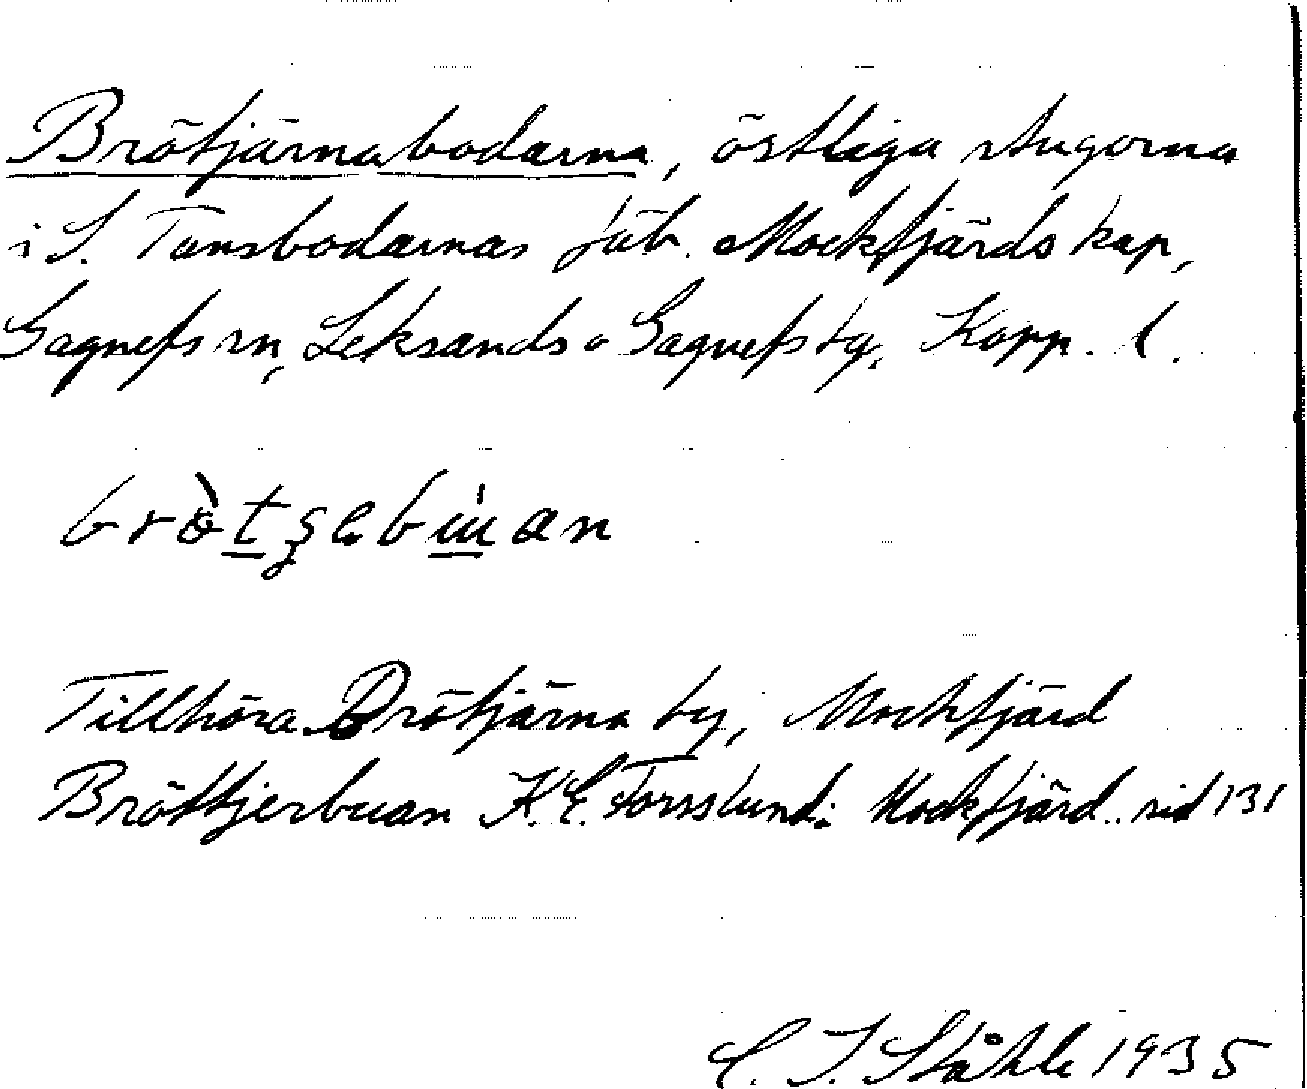 Brötjärnabodarna, östliga stugorna
i S. Tansbodarnas fäb. Mockfjärds kap,
Gagnefs sn, Leksands o Gagnefs tg. Kopp. l.
Tillhöra Brötjärna by, Mockfjärd
Bröttjerbuan K.E. Forsslund: Mockfjärd.. sid 131
C. I. Ståhle 1935